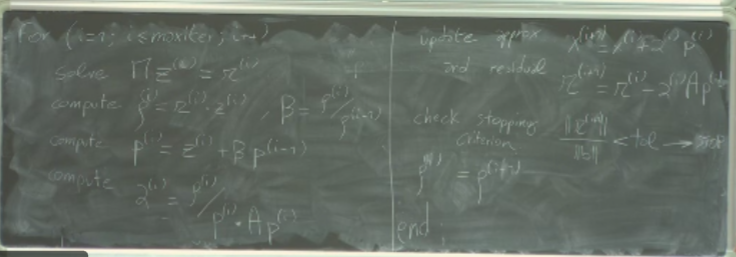 For (i=1; i≤maxiter; i++)
solve M z^(i) = r^(i)
compute ρ^(i) = r^(i) · z^(i), β = ρ^(i)/ρ^(i-1)
compute p^(i) = z^(i) + β p^(i-1)
compute α^(i) = ρ^(i)/p^(i) · A p^(i)
update approx x^(i+1) = x^(i) + α^(i) p^(i)
and residual r^(i+1) = r^(i) - α^(i) A p^(i)
check stopping
criterion ||r^(i+1)||/||b|| < tol → stop
end